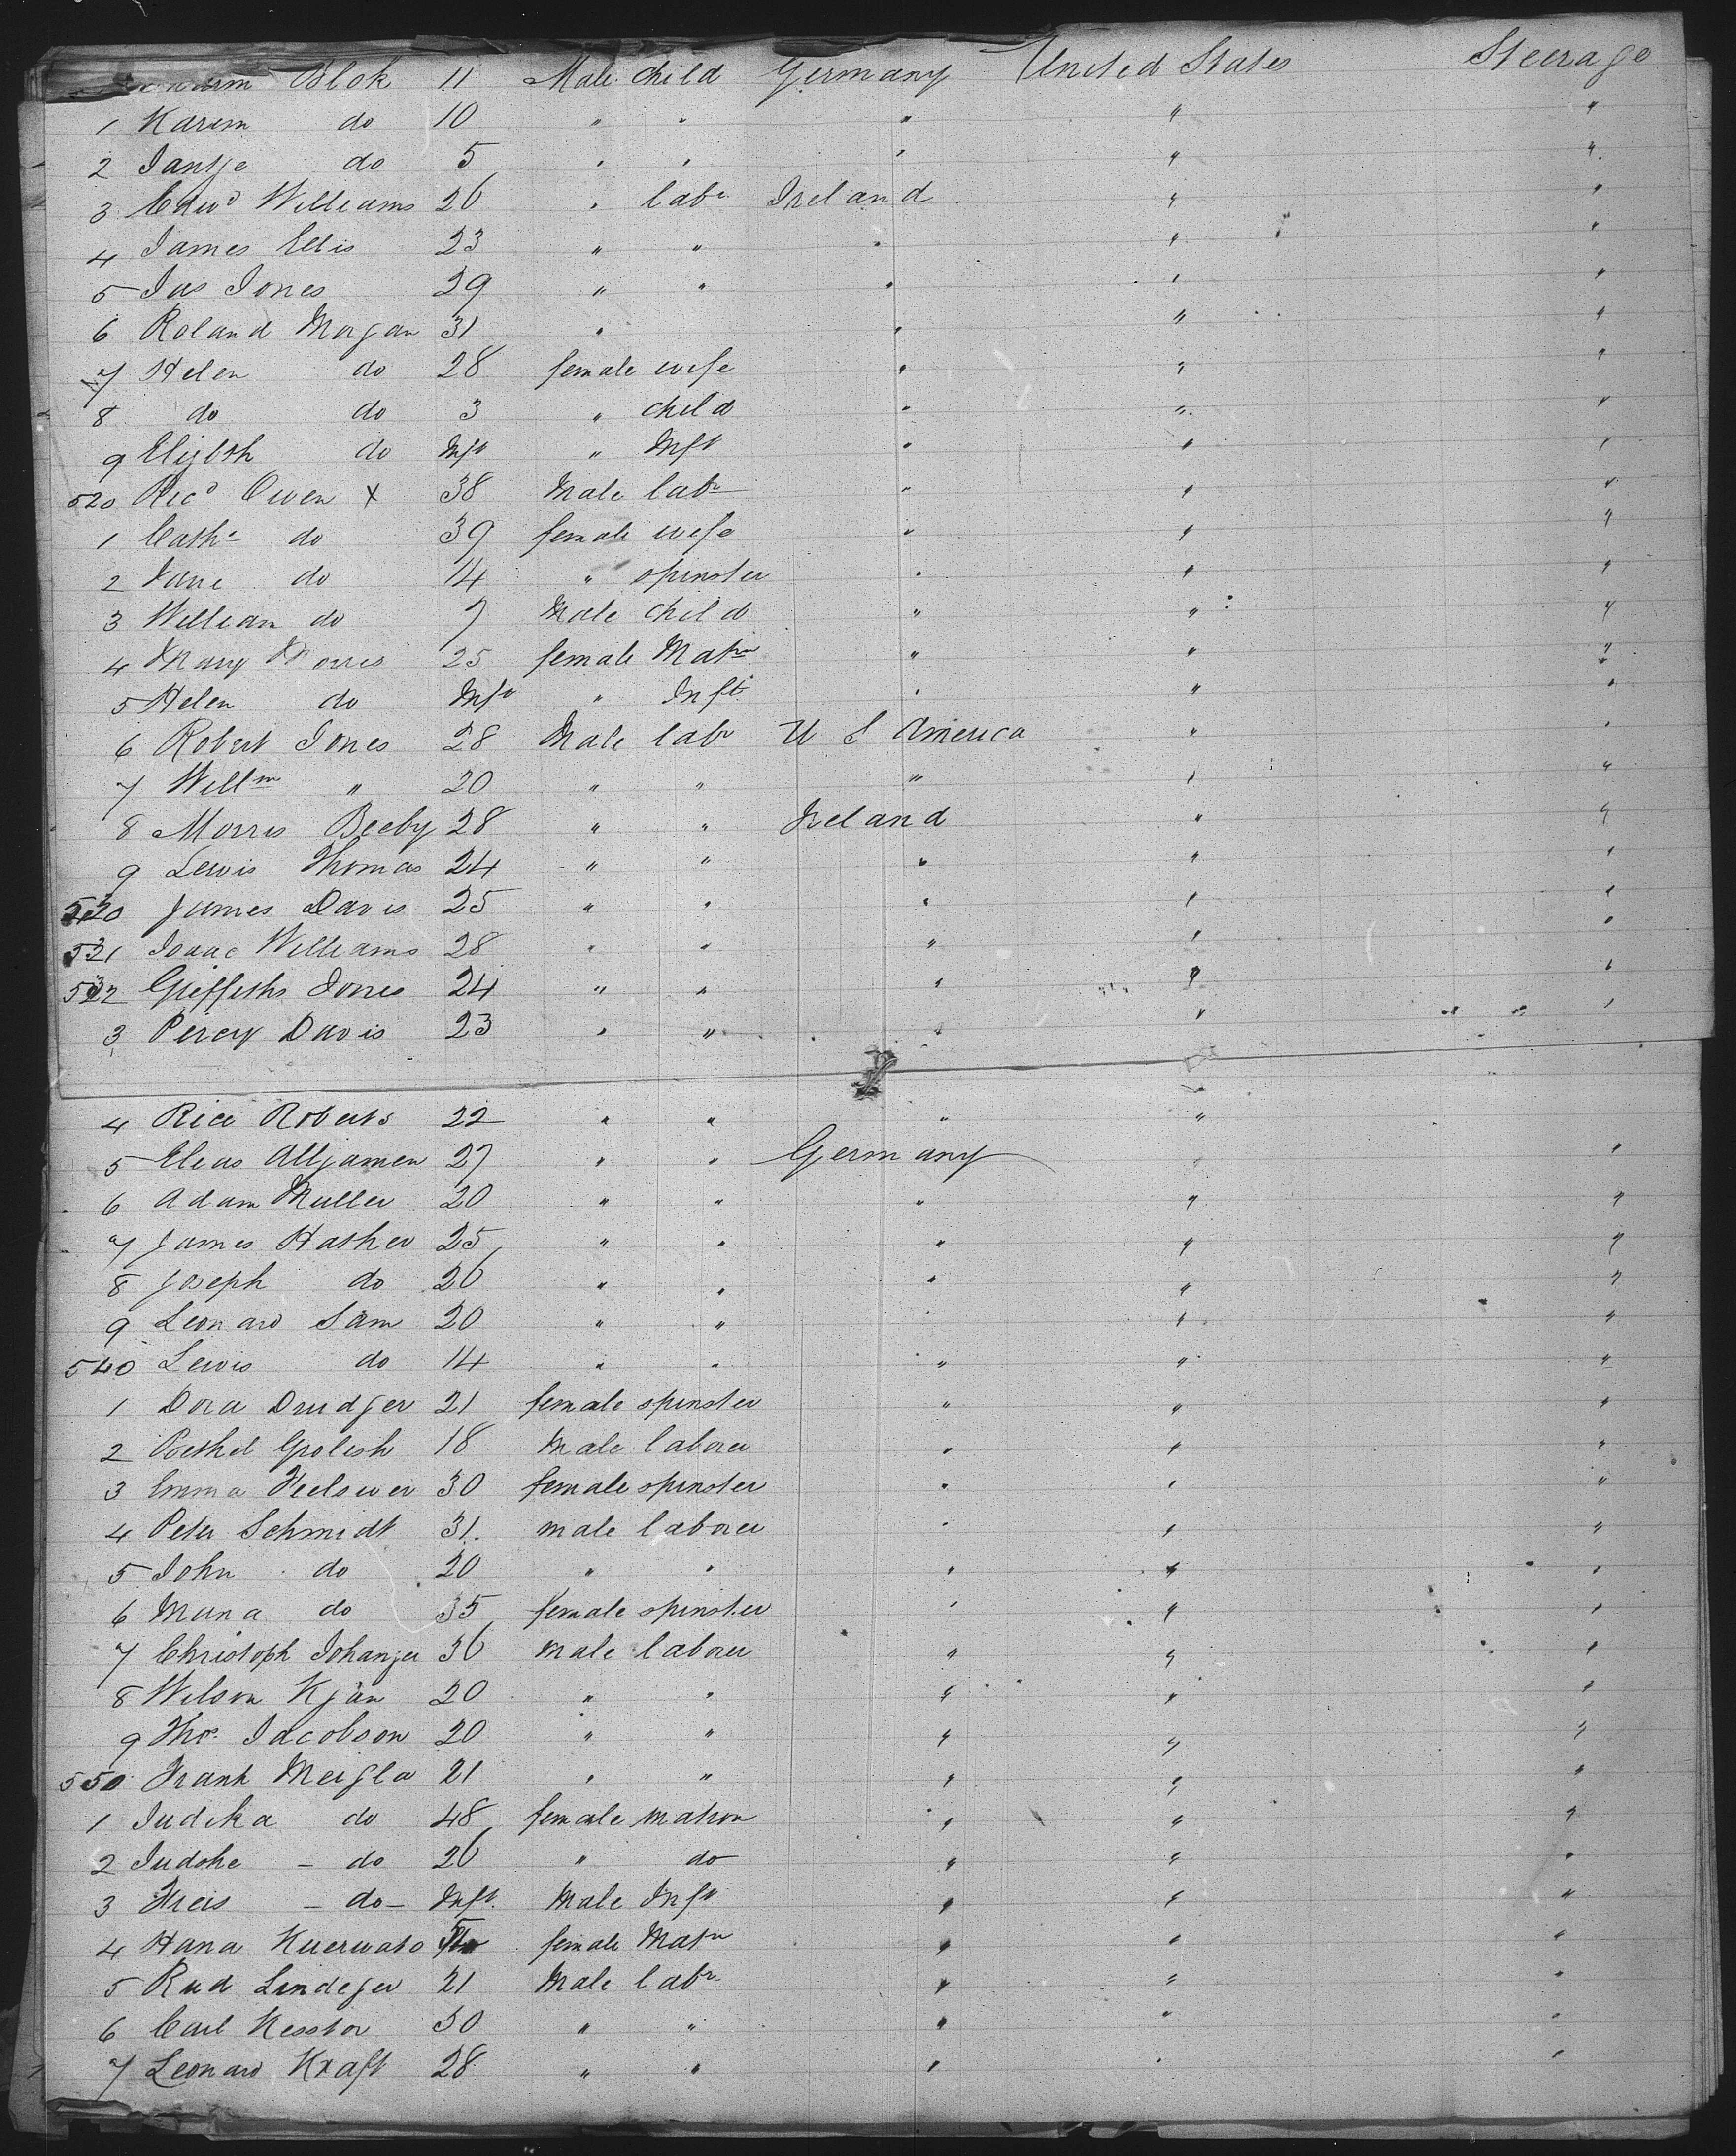 Blok 11 Male child Germany United States Steerage
1 Karem do 10 " " " " "
2 Jantje do 5 " " " " "
3 Edwd Williams 26 " labr Ireland " "
4 James Ellis 23 " " " " "
5 Jas Jones 29 " " " " "
6 Roland Morgan 31 " " " "
7 Helen do 28 female wife " " "
8 do do 3 " child " " "
9 Elizbth do Inft " Inft " " "
520 Ricd Owen x 38 Male labr " " "
1 Cathe do 39 female wife " " "
2 Jane do 14 " spinster " " "
3 William do 7 Male child " " "
4 Mary Morris 25 female Matrn " " "
5 Helen do Inft " Inft " " "
6 Robert Jones 28 Male labr U S America " "
7 Willm " 20 " " " " "
8 Morris Beeby 28 " " Ireland " "
9 Lewis Thomas 24 " " " " "
530 James Davis 25 " " " " "
531 Isaac Williams 28 " " " " "
532 Griffiths Jones 24 " " " " "
3 Percy Davis 23 " " " " "
4 Rice Roberts 22 " " " "
5 Elias Alljamen 27 " " Germany " "
6 Adam Muller 20 " " " " "
7 James Hasher 25 " " " " "
8 Joseph do 26 " " " " "
9 Leonard Sam 20 " " " " "
540 Lewis do 14 " " " " "
1 Dora Drudger 21 female spinster " " "
2 Grolish 18 Male laborer " " "
3 Emma 30 female spinster " " "
4 Peter Schmidt 31 male laborer " " "
5 John do 20 " " " " "
6 Maria do 35 female spinster " " "
7 Christoph Johanjer 36 male laborer " " "
8 Wilson Kjan 20 " " " " "
9 Thos Jacobson 20 " " " " "
550 Frank Meigla 21 " " " " "
1 Judika do 48 female matron " " "
2 Judohe - do 26 " do " " "
3 Freis - do - Inft. Male Inft " " "
4 Hana Kuerwato female Matrn " " "
5 Rud Lindeger 21 Male labr " " "
6 Carl Kesstor 30 " " " " "
7 Leonard Kraft 28 " " " " "